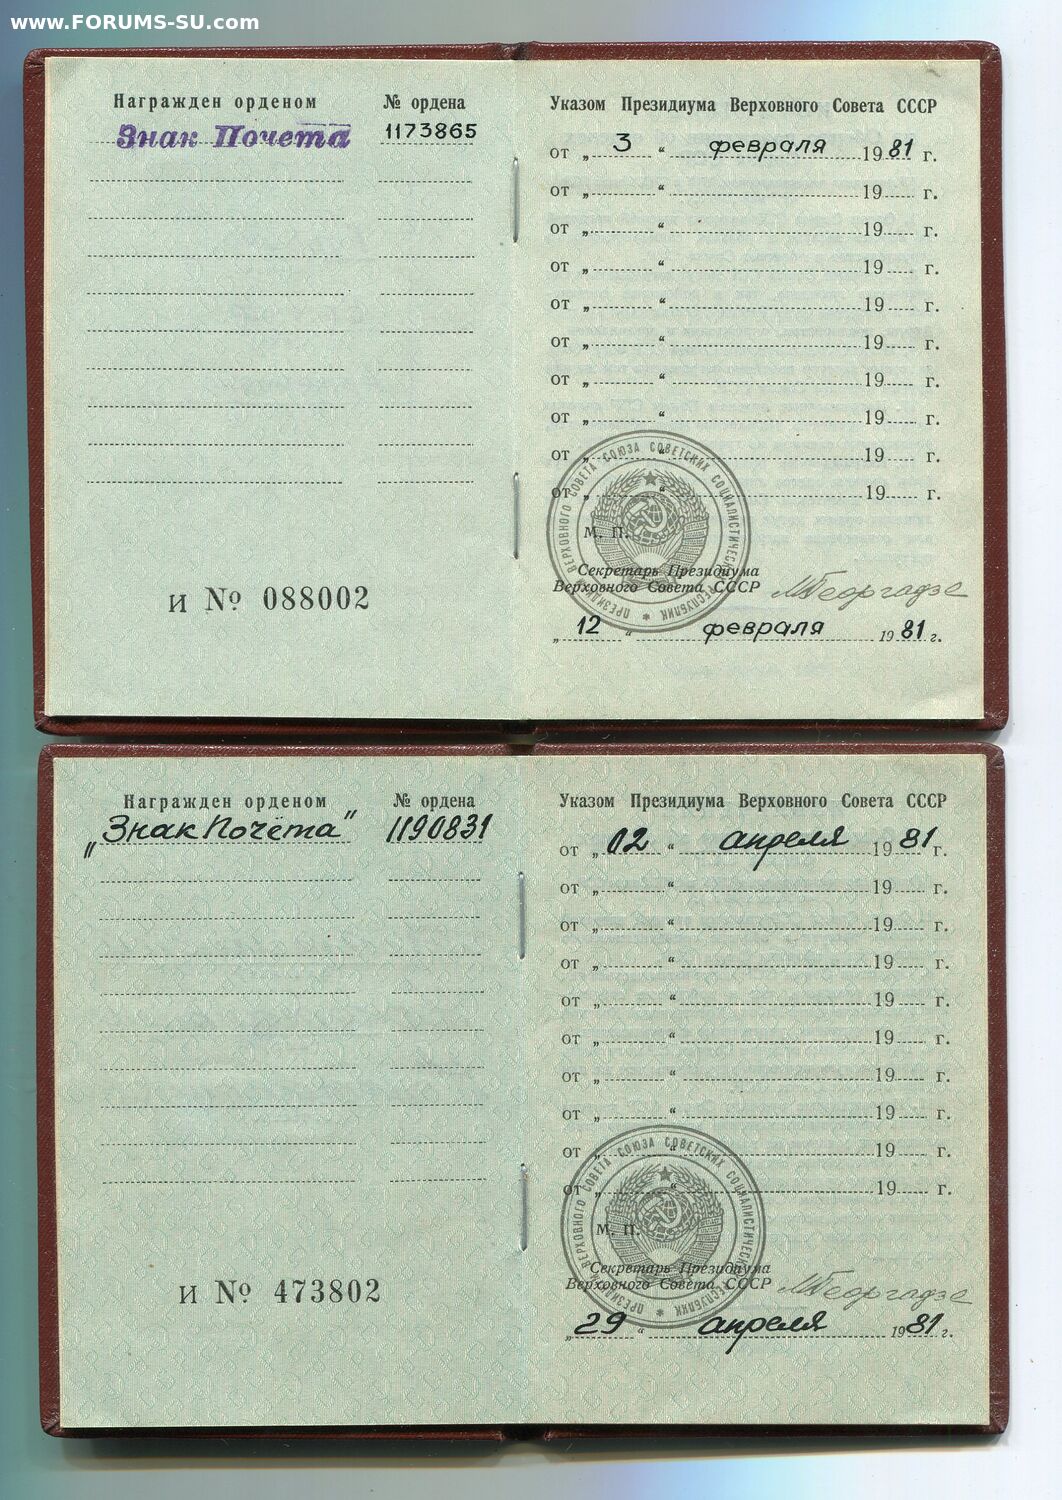 www.FORUMS-SU.com
Награжден орденом № ордена
Знак Почета 1173865
И № 088002
Указом Президиума Верховного Совета СССР
от „ 3 “ февраля 1981 г.
от „ “ 19 г.
от „ “ 19 г.
от „ “ 19 г.
от „ “ 19 г.
от „ “ 19 г.
от „ “ 19 г.
от „ “ 19 г.
от „ “ 19 г.
от „ “ 19 г.
ПРЕЗИДИУМ ВЕРХОВНОГО СОВЕТА СОЮЗА СОВЕТСКИХ СОЦИАЛИСТИЧЕСКИХ РЕСПУБЛИК
М. П.
Секретарь Президиума
Верховного Совета СССР МГеоргадзе
„ 12 “ февраля 1981 г.
Награжден орденом № ордена
„Знак Почёта“ 1190831
И № 473802
Указом Президиума Верховного Совета СССР
от „ 02 “ апреля 1981 г.
от „ “ 19 г.
от „ “ 19 г.
от „ “ 19 г.
от „ “ 19 г.
от „ “ 19 г.
от „ “ 19 г.
от „ “ 19 г.
от „ “ 19 г.
от „ “ 19 г.
ПРЕЗИДИУМ ВЕРХОВНОГО СОВЕТА СОЮЗА СОВЕТСКИХ СОЦИАЛИСТИЧЕСКИХ РЕСПУБЛИК
М. П.
Секретарь Президиума
Верховного Совета СССР МГеоргадзе
„ 29 “ апреля 1981 г.